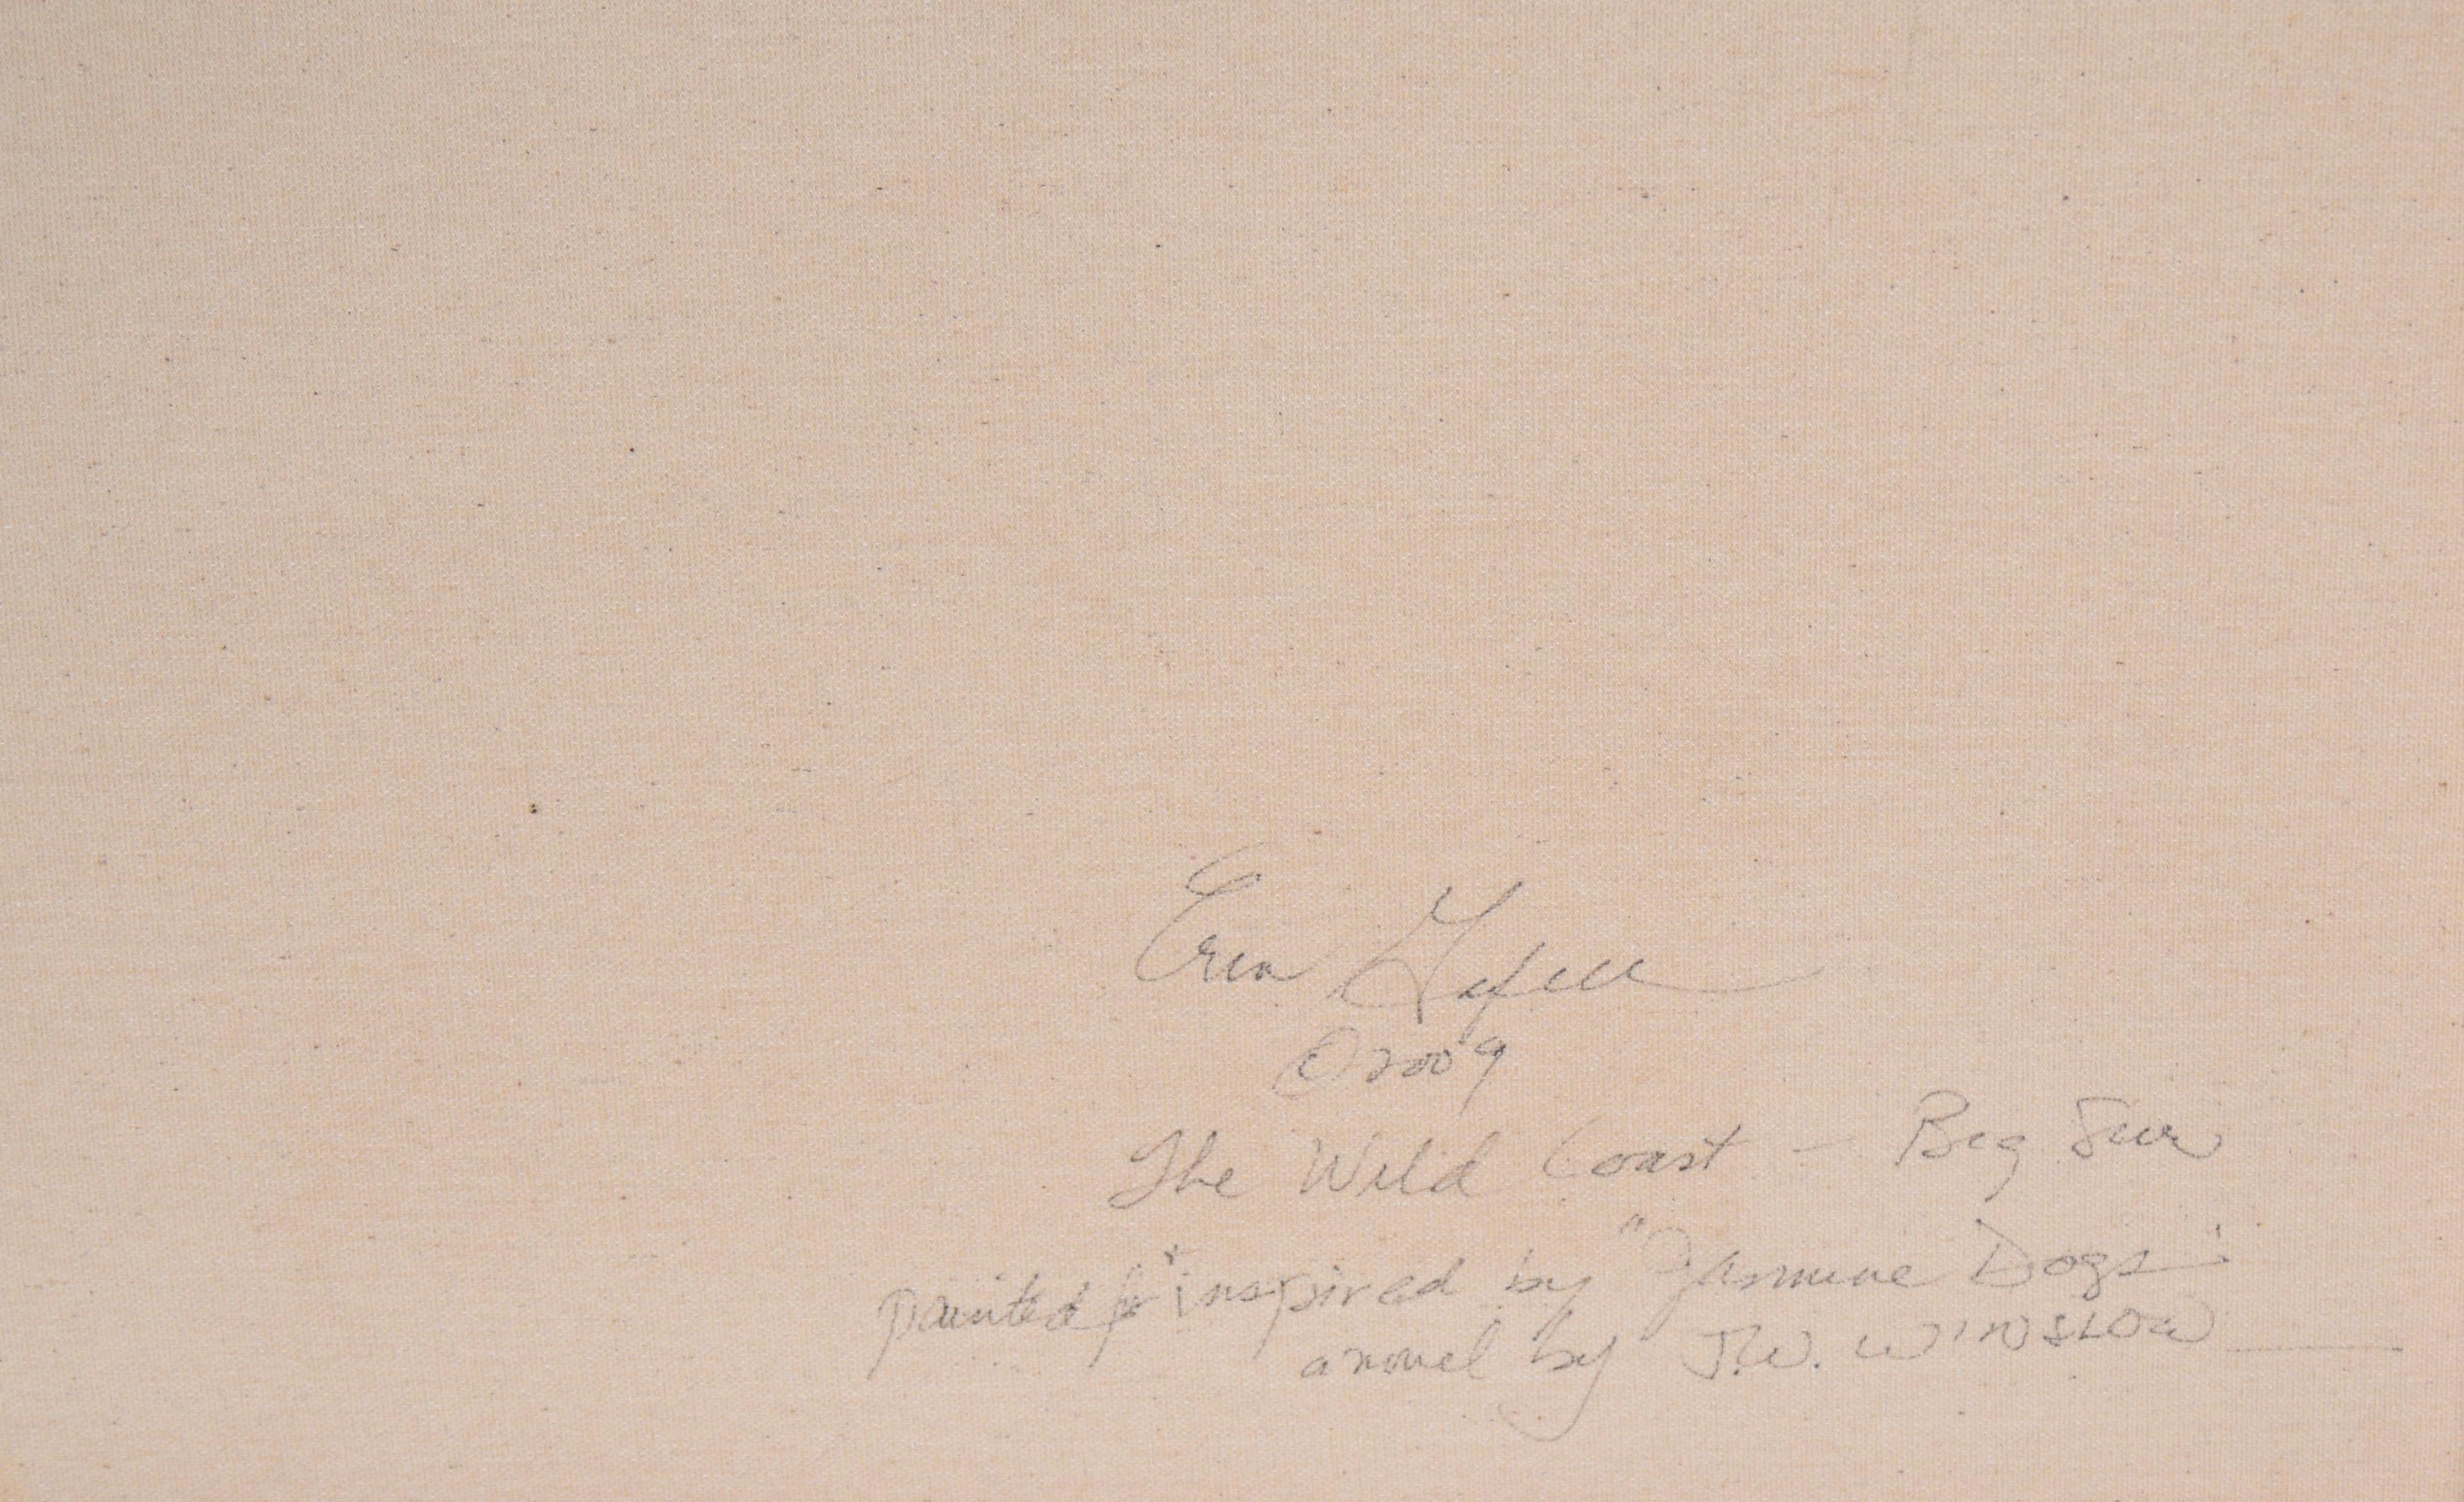 Erin Gafill
© 2009
The Wild Coast - Big Sur
painted for + inspired by "Jasmine Dogs"
a novel by J.W. WINSLOW